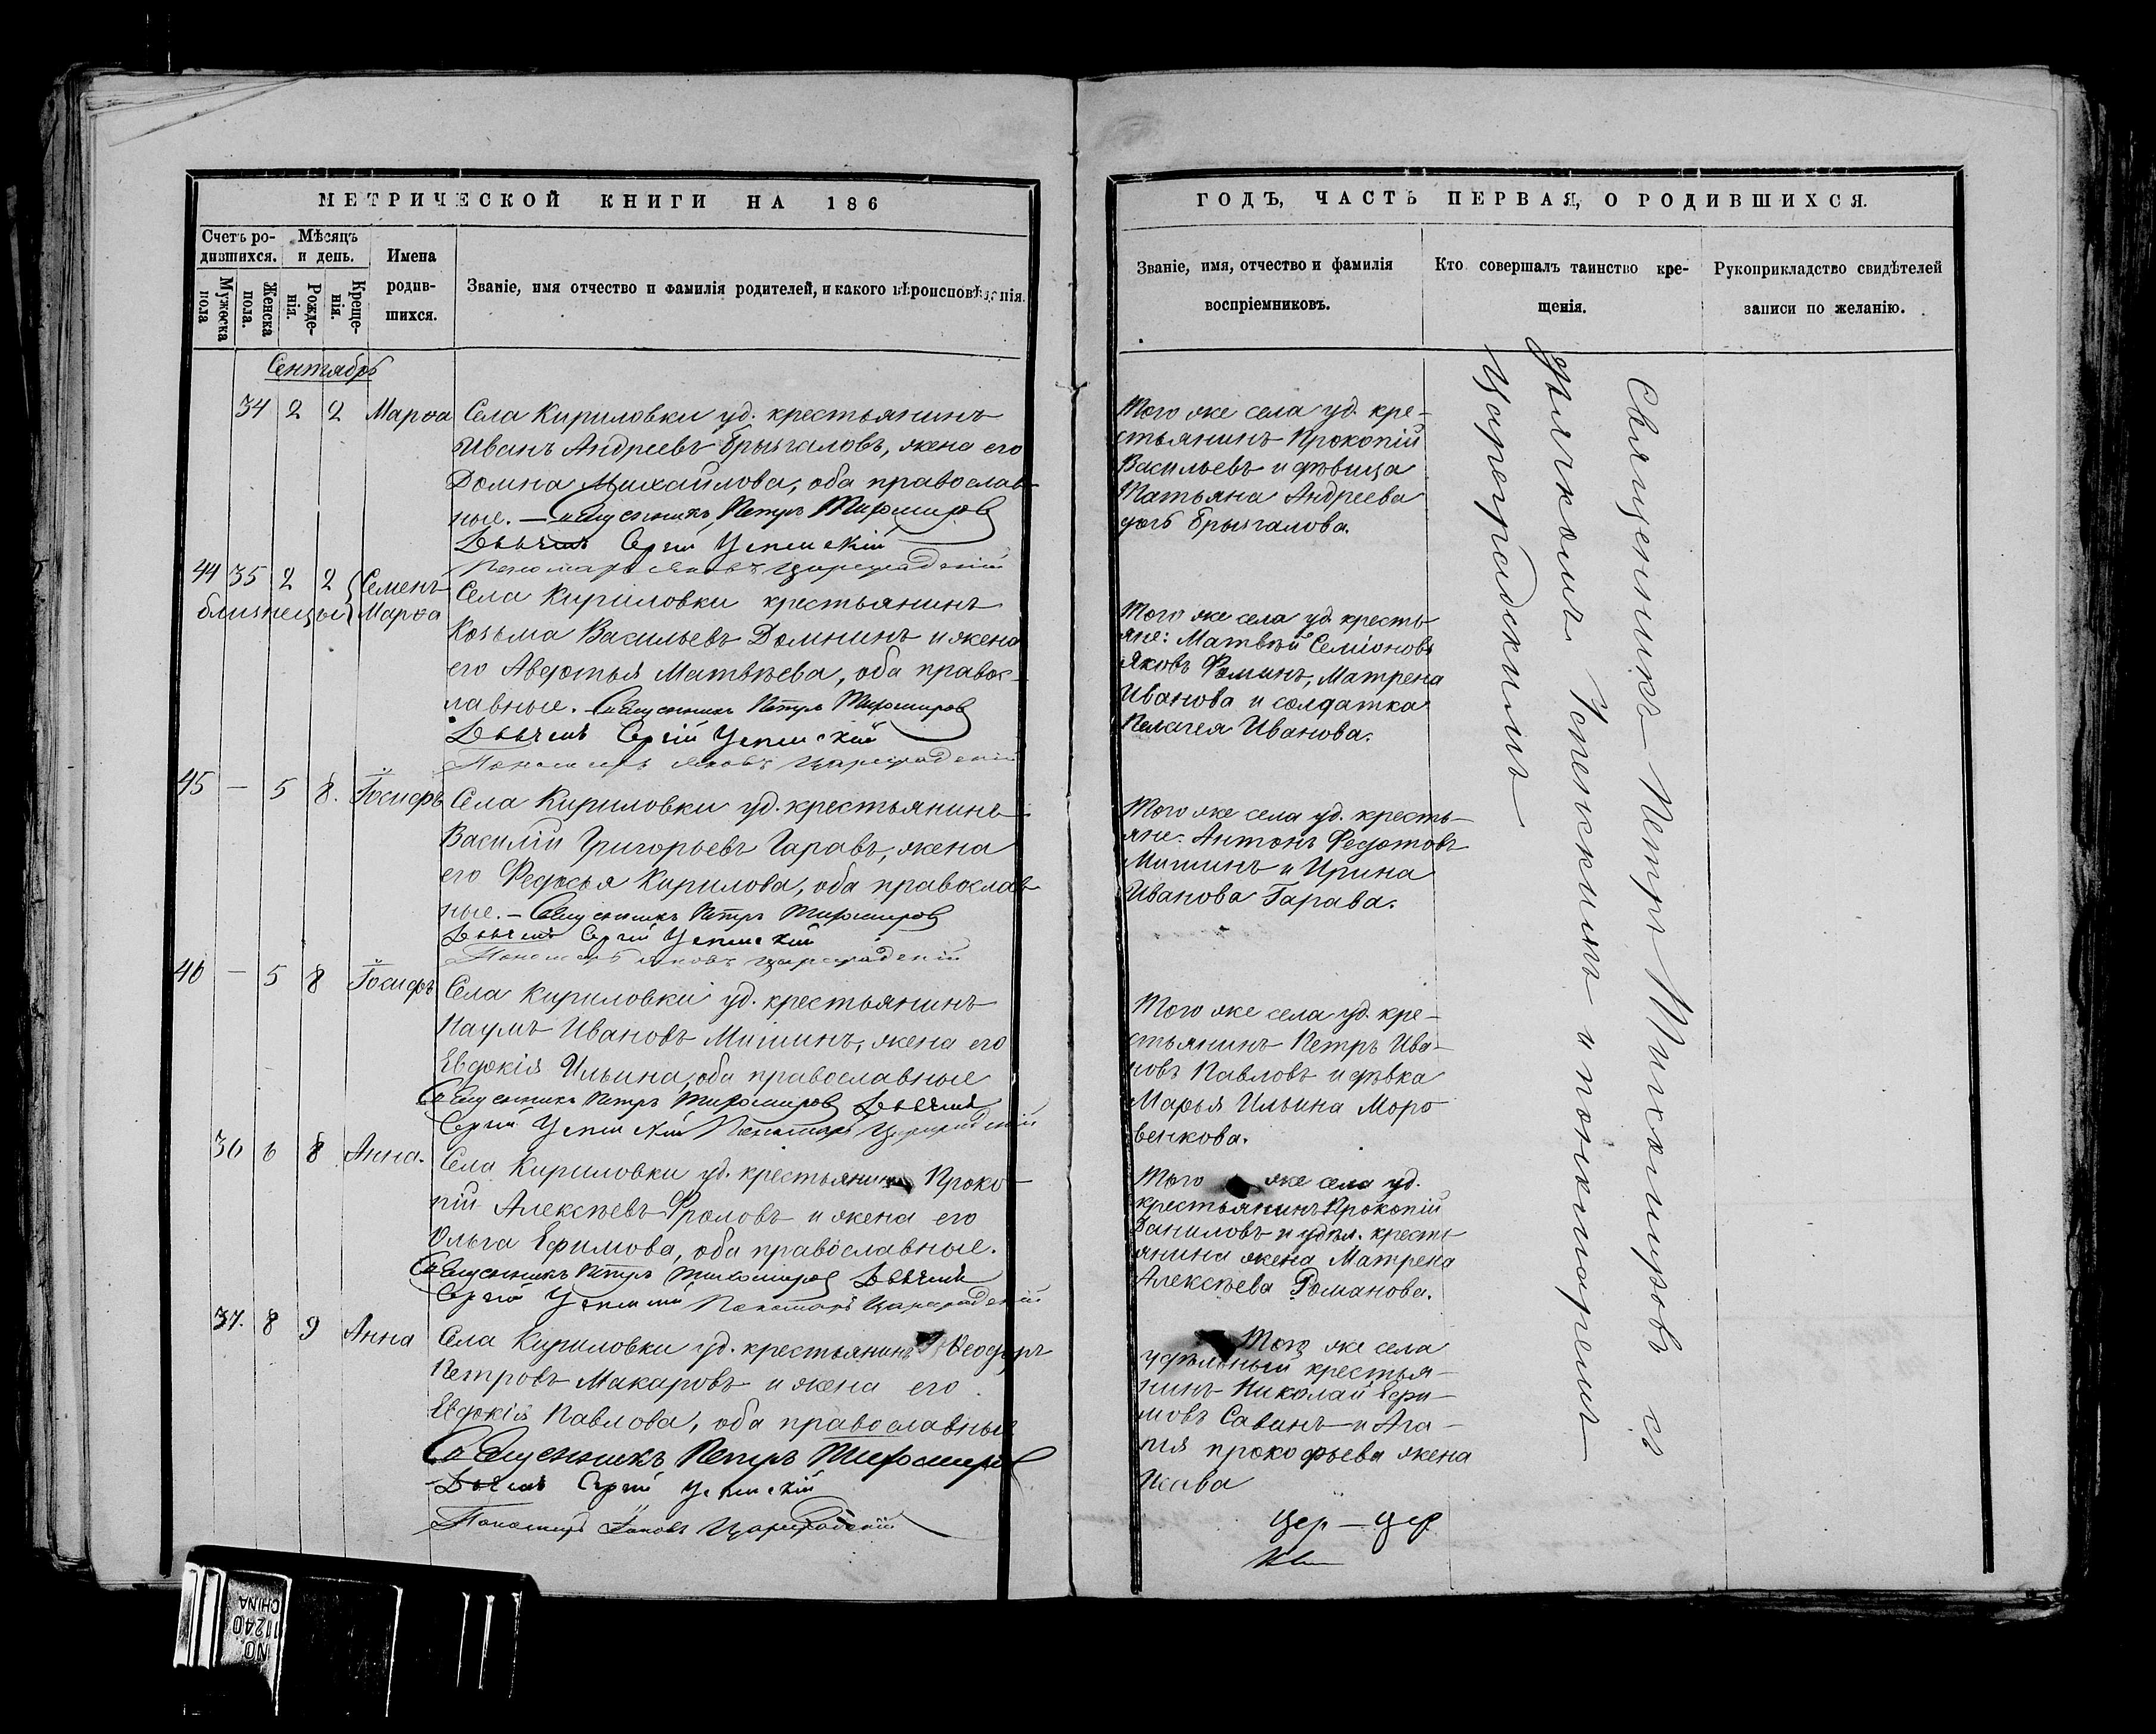 МЕТРИЧЕСКОЙ КНИГИ НА 186
Счетъ ро-
дившихся.
Мѣсяцъ
и день.
Мужеска
пола
Женска
пола.
Рожде-
нія.
Креще-
нія.
Имена
родив-
шихся.
Званіе, имя отчество и фамилія родителей, и какого вѣроисповѣданія.
Сентябрь
34 2 2 Марѳа Села Кириловки уд. крестьянинъ
Иванъ Андреевъ Брызгаловъ, жена его
Домна Михайлова, оба православ-
ные. — Священникъ Петръ Тихомировъ
Дьячекъ Сергій Успенскій
Пономарь Яковъ Цареградскій
44 35 2 2 Семенъ
близнецы Марѳа
Села Кириловки крестьянинъ
Козьма Васильевъ Домнинъ и жена
его Авдотья Матвѣева, оба правос-
лавные. Священникъ Петръ Тихомировъ
Дьячекъ Сергій Успенскій
Пономарь Яковъ Цареградскій
45 — 5 8. Іосифъ Села Кириловки уд. крестьянинъ
Василій Григорьевъ Гаравъ, жена
его Федосья Кирилова, оба православ-
ные. — Священникъ Петръ Тихомировъ
Дьячекъ Сергій Успенскій
Пономарь Яковъ Цареградскій
46 — 5 8 Іосифъ Села Кириловки уд. крестьянинъ
Наумъ Ивановъ Мишинъ, жена его
Евдокія Ильина, оба православные
Священникъ Петръ Тихомировъ Дьячекъ
Сергій Успенскій Пономарь Цареградскій
36 6 8 Анна. Села Кириловки уд. крестьянинъ Проко-
пій Алексѣевъ Фроловъ и жена его
Ольга Ефимова, оба православные.
Священникъ Петръ Тихомировъ Дьячекъ
Сергій Успенскій Пономарь Цареградскій
37. 8 9 Анна Села Кириловки уд. крестьянинъ Ѳеодоръ
Петровъ Макаровъ и жена его
Евдокія Павлова, оба православные
Священникъ Петръ Тихомировъ
Дьячекъ Сергій Успенскій
Пономарь Іаковъ Цареградскій
ГОДЪ, ЧАСТЬ ПЕРВАЯ, О РОДИВШИХСЯ.
Званіе, имя, отчество и фамилія
воспріемниковъ.
Кто совершалъ таинство кре-
щенія.
Рукоприкладство свидѣтелей
записи по желанію.
Того же села уд. кре-
стьянинъ Прокопій
Васильевъ и дѣвица
Татьяна Андреева
дочь Брызгалова.
Того же села уд. кресть-
яне: Матвѣй Семіоновъ
Яковъ Фоминъ, Матрена
Иванова и солдатка
Пелагея Иванова.
Того же села уд. кресть-
яне: Антонъ Федотовъ
Мишинъ и Ирина
Иванова Гарава.
Того же села уд. кре-
стьянинъ Петръ Ива-
новъ Павловъ и дѣвка
Марья Ильина Моро
венкова.
Того же села уд.
крестьянинъ Прокопій
Даниловъ и удѣл. кресть-
янина жена Матрена
Алексѣева Романова.
Того же села
удѣльный крестья-
нинъ Николай Ефи-
мовъ Савинъ и Ага-
пія прокофьева жена
Цер — цер
Священникъ Петръ Тихомировъ съ
дьячкомъ Успенскимъ и пономаремъ
Цареградскимъ
NO.
11240
CHINA